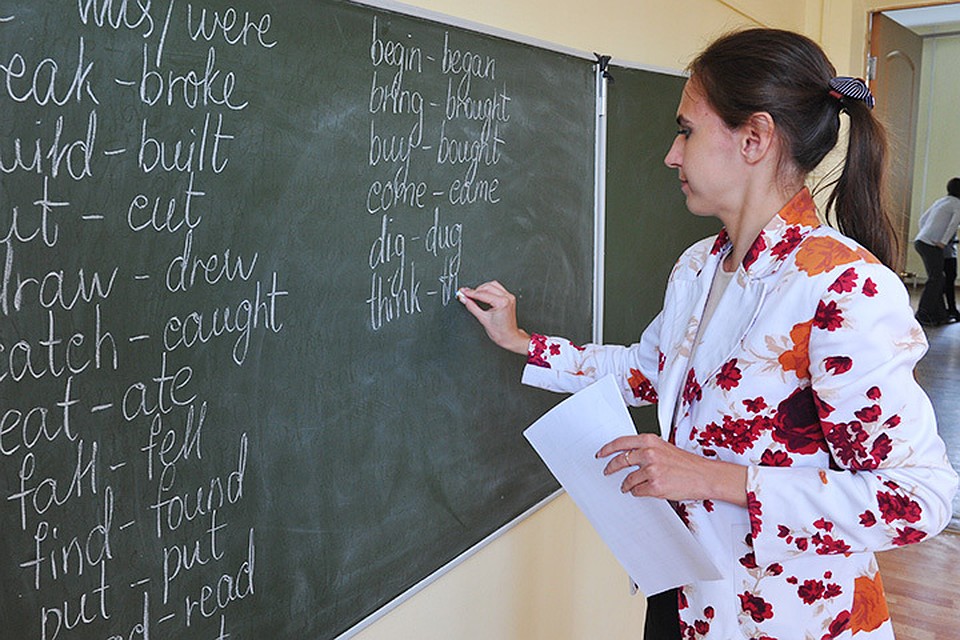 - was/were
reak - broke
uild - built
ut - cut
draw - drew
catch - caught
eat - ate
fall - fell
find - found
put - put
ead - read
begin - began
bring - brought
buy - bought
come - came
dig - dug
think - th